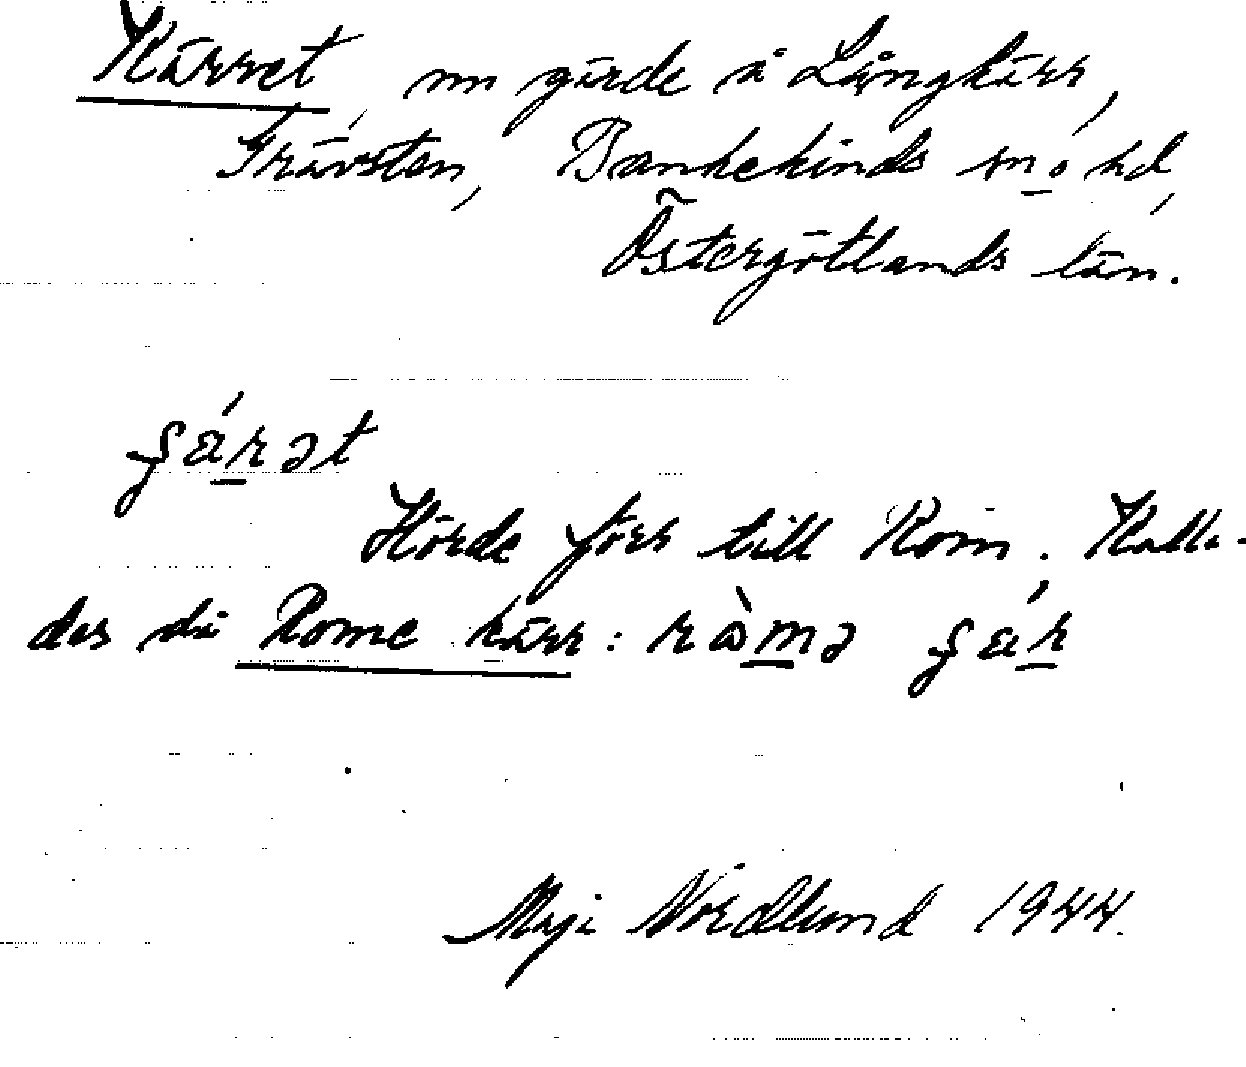 Kärret, nn gärde å Långkärr,
Grävsten, Bankekinds sn o hd,
Östergötlands län.
ʂǽrət
Hörde förr till Rom. Kalla-
des då Rome kärr: ròmə ʂǽr
Maj Nordlund 1944.